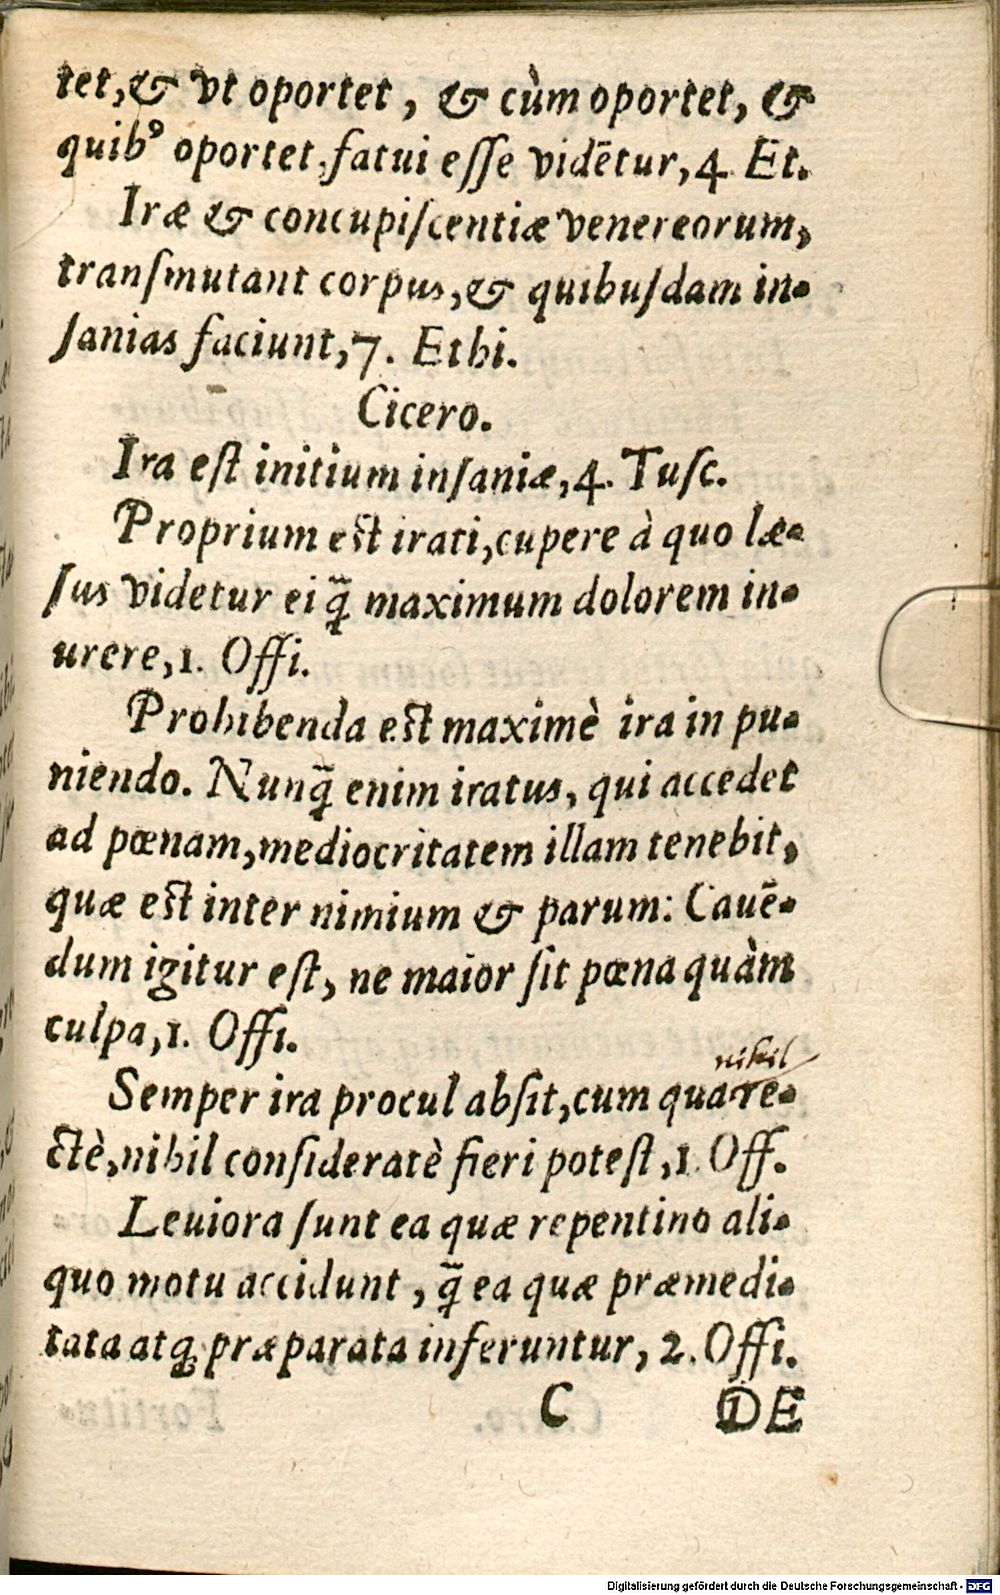 tet, & vt oportet, & cùm oportet, &
quibꝰ oportet, fatui eſſe vidētur, 4. Et.
Iræ & concupiſcentiæ venereorum,
tranſmutant corpus, & quibuſdam in-
ſanias faciunt, 7. Ethi.
Cicero.
Ira eſt initium inſaniæ, 4. Tuſc.
Proprium eſt irati, cupere à quo læ-
ſus videtur ei q̃ maximum dolorem in-
urere, 1. Offi.
Prohibenda eſt maximè ira in pu-
niendo. Nunq̃ enim iratus, qui accedet
ad pœnam, mediocritatem illam tenebit,
quæ eſt inter nimium & parum: Cauē-
dum igitur eſt, ne maior ſit pœna quàm
culpa, 1. Offi.
nihil
Semper ira procul abſit, cum qua re-
ctè, nihil conſideratè fieri poteſt, 1. Off.
Leuiora ſunt ea quæ repentino ali-
quo motu accidunt, q̃ ea quæ præmedi-
tata atq; præparata inferuntur, 2. Offi.
C DE
Digitalisierung gefördert durch die Deutsche Forschungsgemeinschaft - DFG